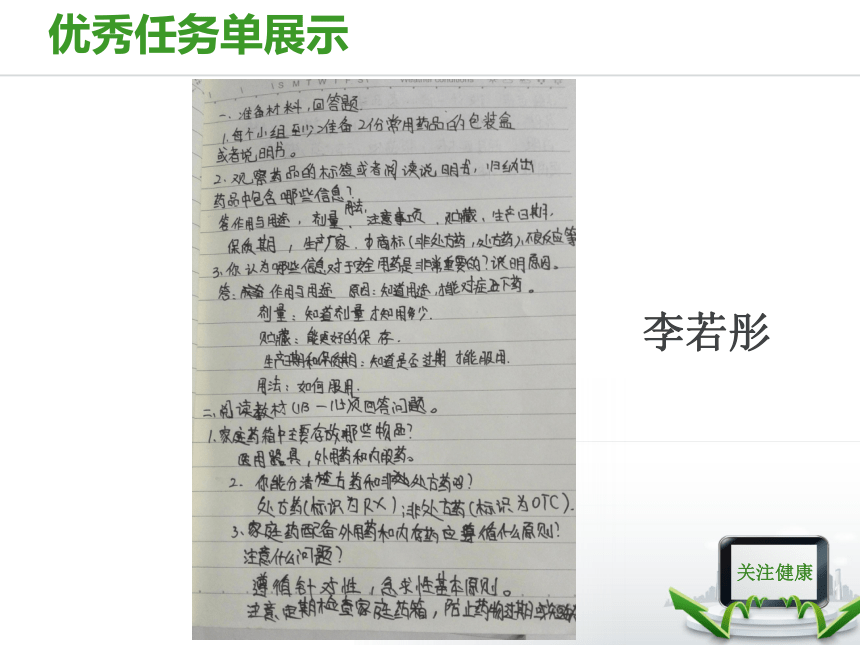 优秀任务单展示
I S M T W T F S I Weather conditions
一、准备材料,回答题.
1.每个小组至少准备2份常用药品的包装盒
或者说明书。
2.观察药品的标签或者阅读说明书,归纳出
药品中包含哪些信息?
答作用与用途,剂量、用法,注意事项、贮藏、生产日期.
保质期,生产厂家.商标(非处方药,处方药),不良反应等
3.你认为哪些信息对于安全用药是非常重要的?说明原因。
答:作用与用途 原因:知道用途,才能对症下药。
剂量:知道剂量才知用多少.
贮藏:能更好的保存.
生产日期和保质期:知道是否过期才能服用.
用法:如何服用.
二、阅读教材(113-115)页回答问题。
1.家庭药箱中主要存放哪些物品?
医用器具,外用药和内服药。
2. 你能分清处方药和非处方药吗?
处方药(标识为RX);非处方药(标识为OTC).
3、家庭药配备外用药和内服药应遵循什么原则?
注意什么问题?
遵循针对性,急求性基本原则。
注意定期检查家庭药箱,防止药物过期
李若彤
关注健康